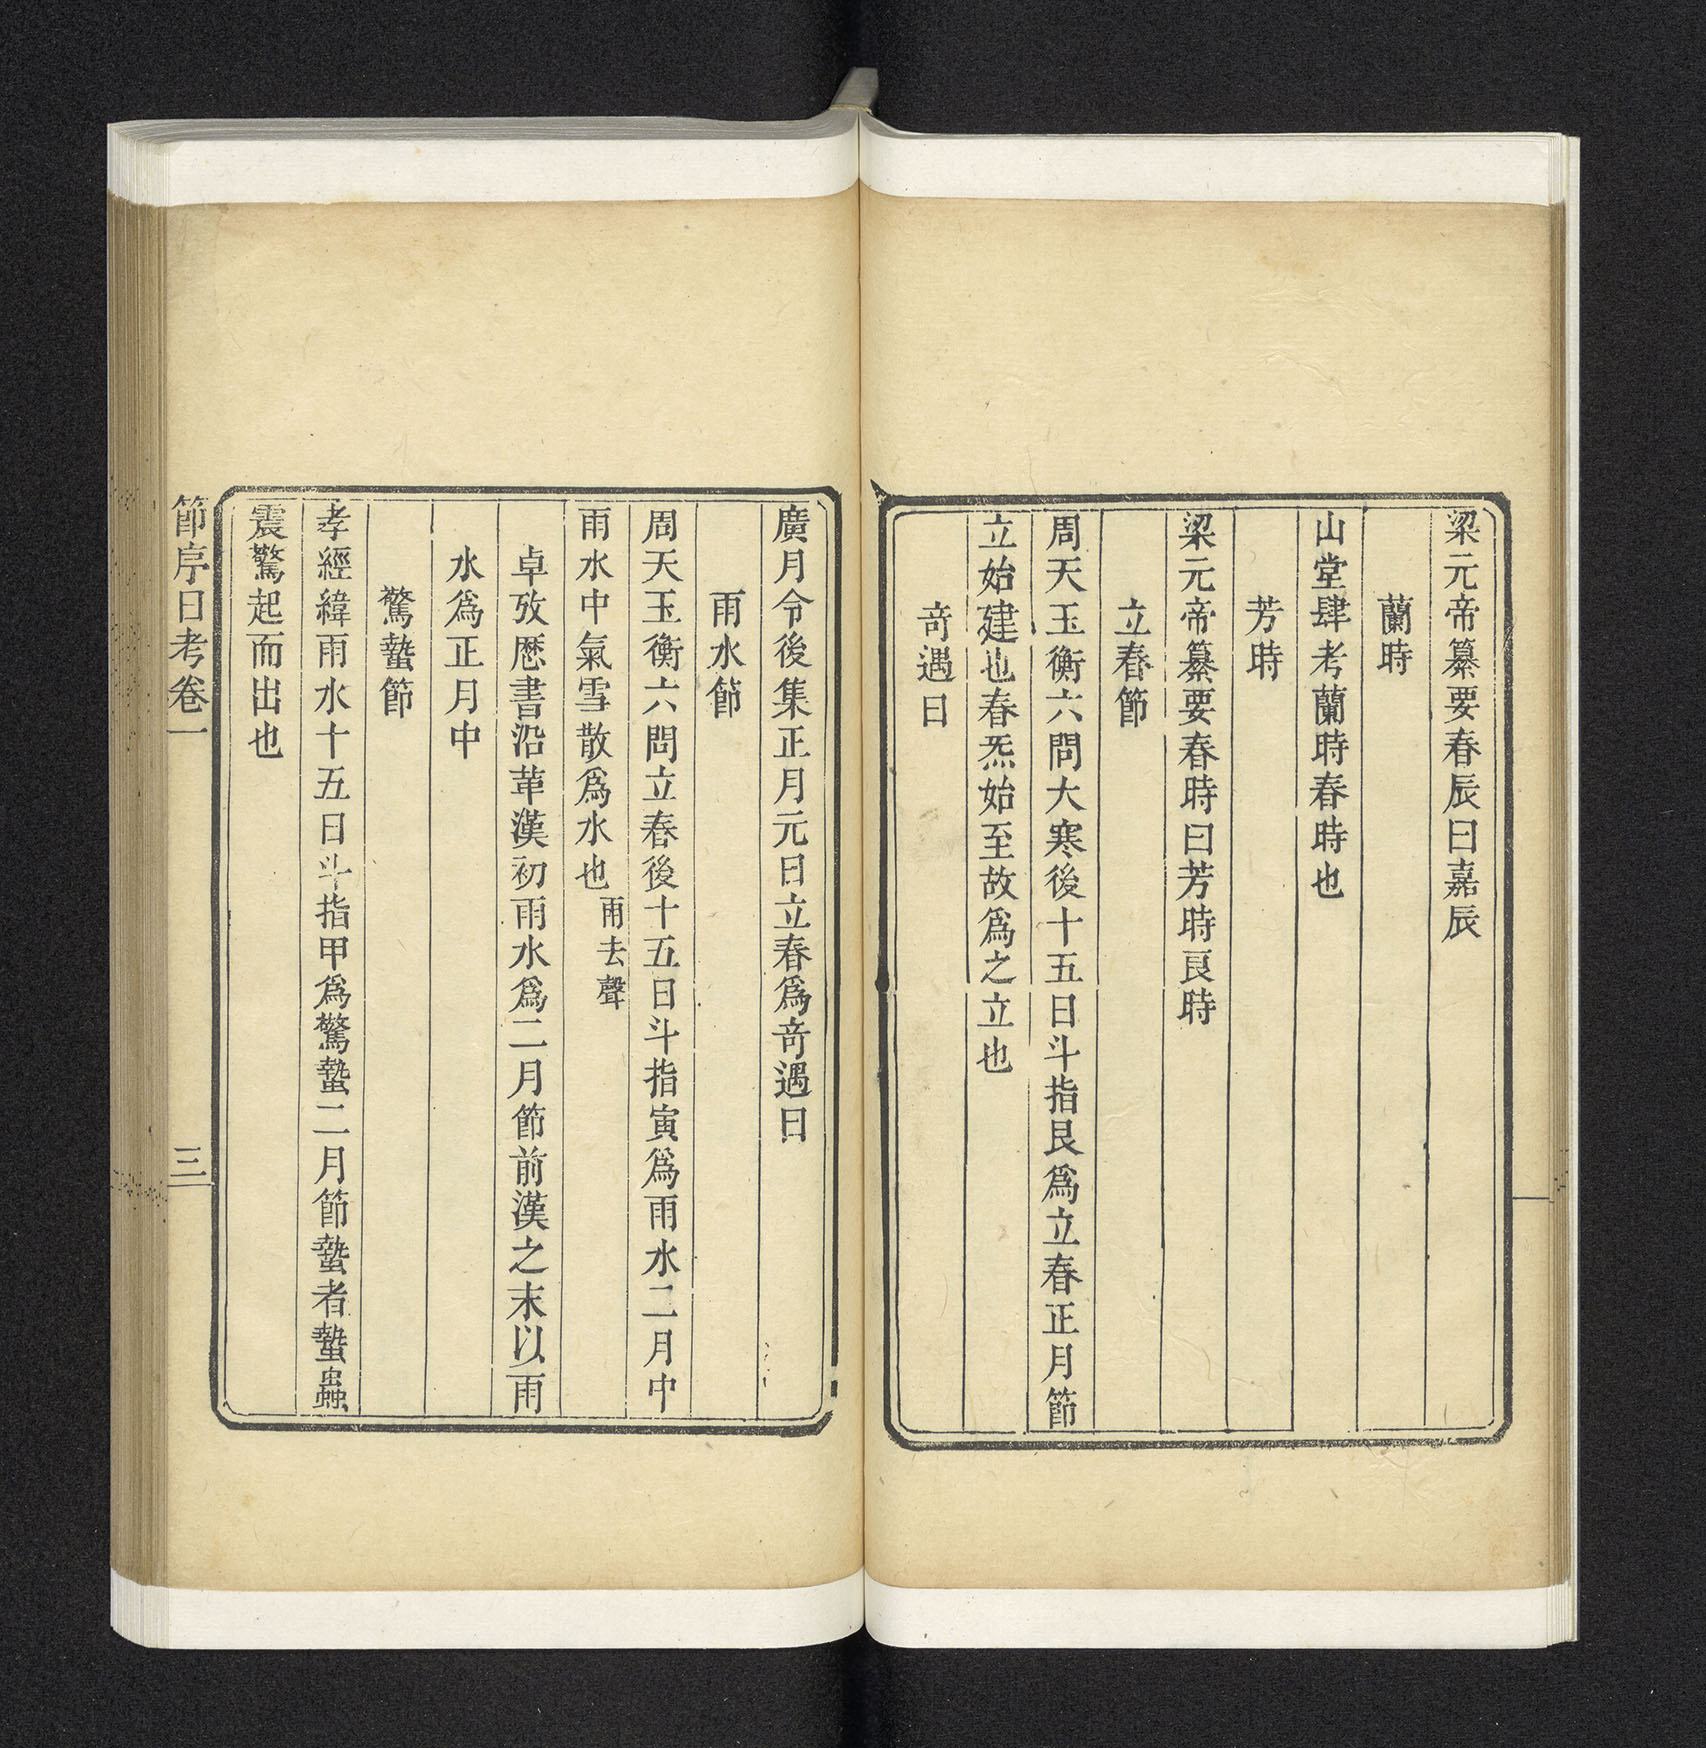 梁元帝纂要春辰曰嘉辰
蘭時
山堂肆考蘭時春時也
芳時
梁元帝纂要春時曰芳時良時
立春節
周天玉衡六問大寒後十五日斗指艮爲立春正月節
立始建也春炁始至故爲之立也
竒遇日
廣月令後集正月元日立春爲竒遇日
雨水節
周天玉衡六問立春後十五日斗指寅爲雨水二月中
雨水中氣雪散爲水也雨去聲
卓攷歷書沿革漢初雨水爲二月節前漢之末以雨
水爲正月中
驚蟄節
孝經緯雨水十五日斗指甲爲驚蟄二月節蟄者蟄蟲
震驚起而出也
節序日考卷一 三